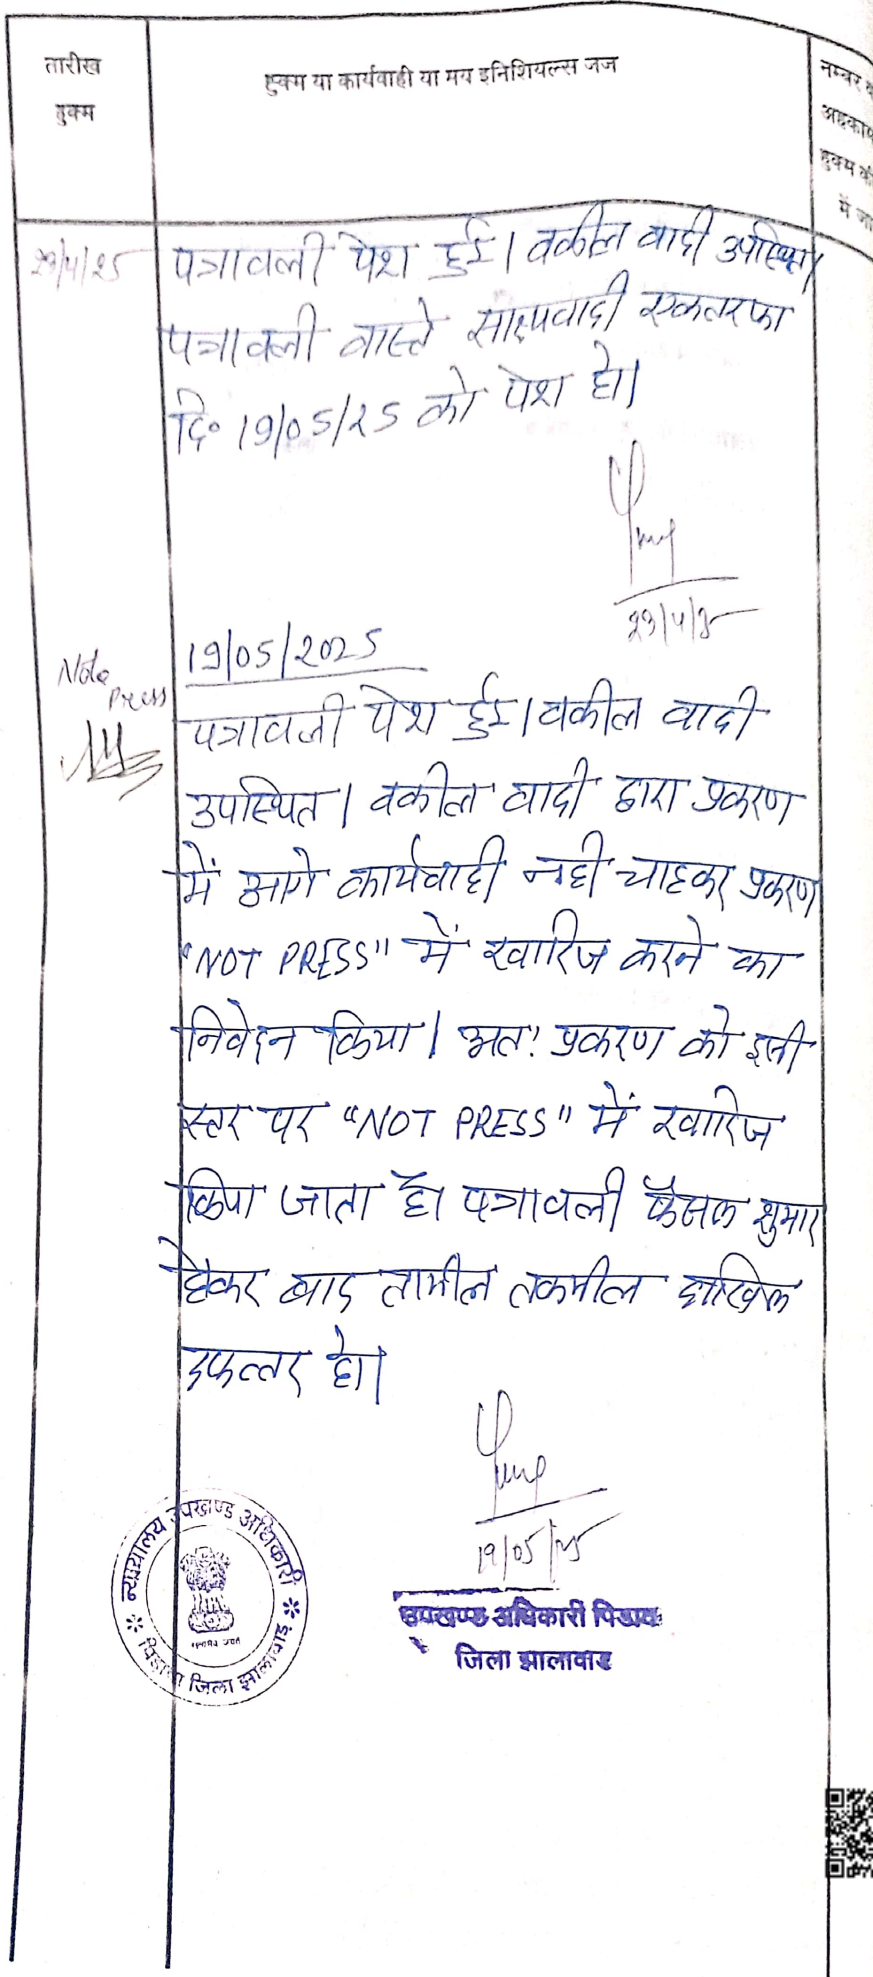 तारीख
हुक्म
हुक्म या कार्यवाही या मय इनिशियल्स जज
नम्बर व
अहकाम
हुक्म की
में जा
पत्रावली पेश हुई। वकील वादी उपस्थित।
पत्रावली वास्ते साक्ष्यवादी एकतरफा
दि० 19/05/25 को पेश हो।
Note
Press
19/05/2025
पत्रावली पेश हुई। वकील वादी
उपस्थित। वकील वादी द्वारा प्रकरण
में आगे कार्यवाही नही चाहकर प्रकरण
"NOT PRESS" में खारिज करने का
निवेदन किया। अतः प्रकरण को इसी
स्तर पर "NOT PRESS" में खारिज
किया जाता है। पत्रावली फैसल शुमार
होकर बाद तामील तकमील दाखिल
दफ्तर हो।
19/05/25
उपखण्ड अधिकारी पिडावा
जिला झालावाड
न्यायालय उपखण्ड अधिकारी
पिडावा जिला झालावाड़